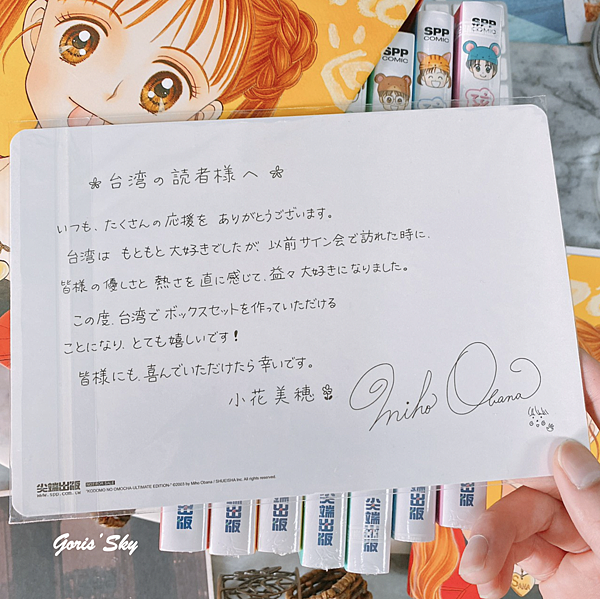 SPP
COMIC
SPP
COMIC
SPP
COMIC
❀ 台湾の読者様へ ❀
いつも、たくさんの応援を ありがとうございます。
台湾は もともと 大好きでしたが、以前サイン会で訪れた時に、
皆様の優しさと 熱さを 直に感じて、益々 大好きになりました。
この度、台湾で ボックスセットを作っていただける
ことになり、とても嬉しいです！
皆様にも、喜んでいただけたら 幸いです。
小花美穂
Miho Obana
尖端出版
"KODOMO NO OMOCHA ULTIMATE EDITION" ©2003 by Miho Obana / SHUEISHA Inc. All rights reserved.
尖端出版
尖端出版
尖端出版
尖端出版
尖端出版
尖端出版
尖端出版
Goris'Sky
SANA